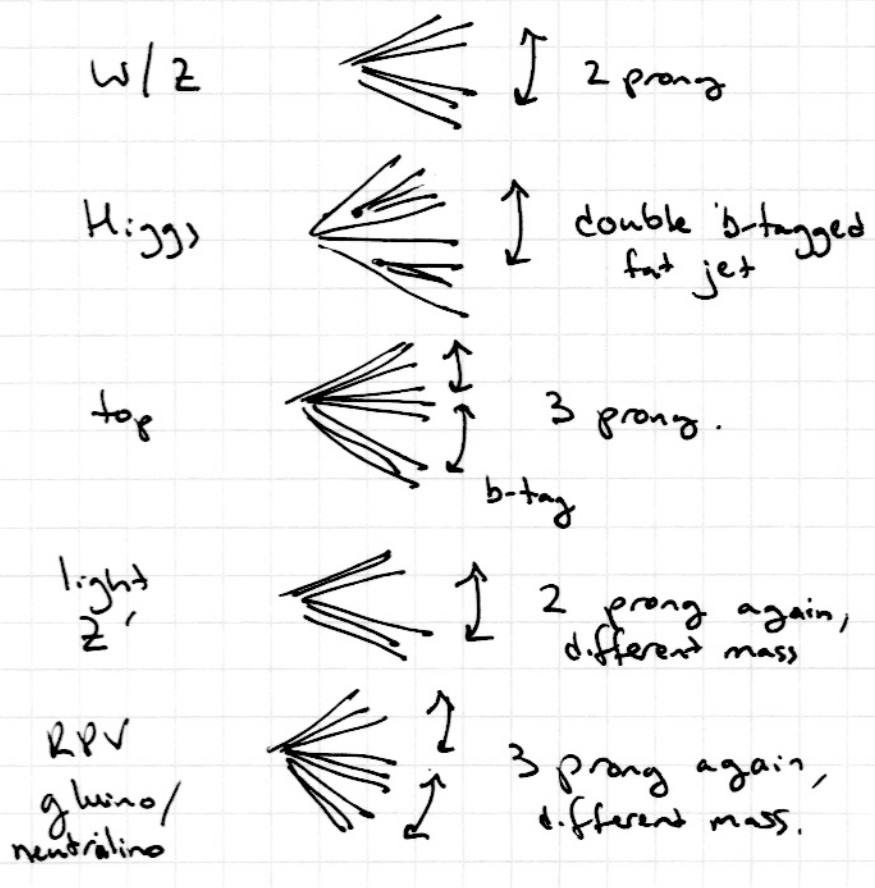 W/Z
2 prong
Higgs
double b-tagged
fat jet
top
3 prong.
b-tag
light
Z'
2 prong again,
different mass
RPV
gluino/
neutralino
3 prong again,
different mass.